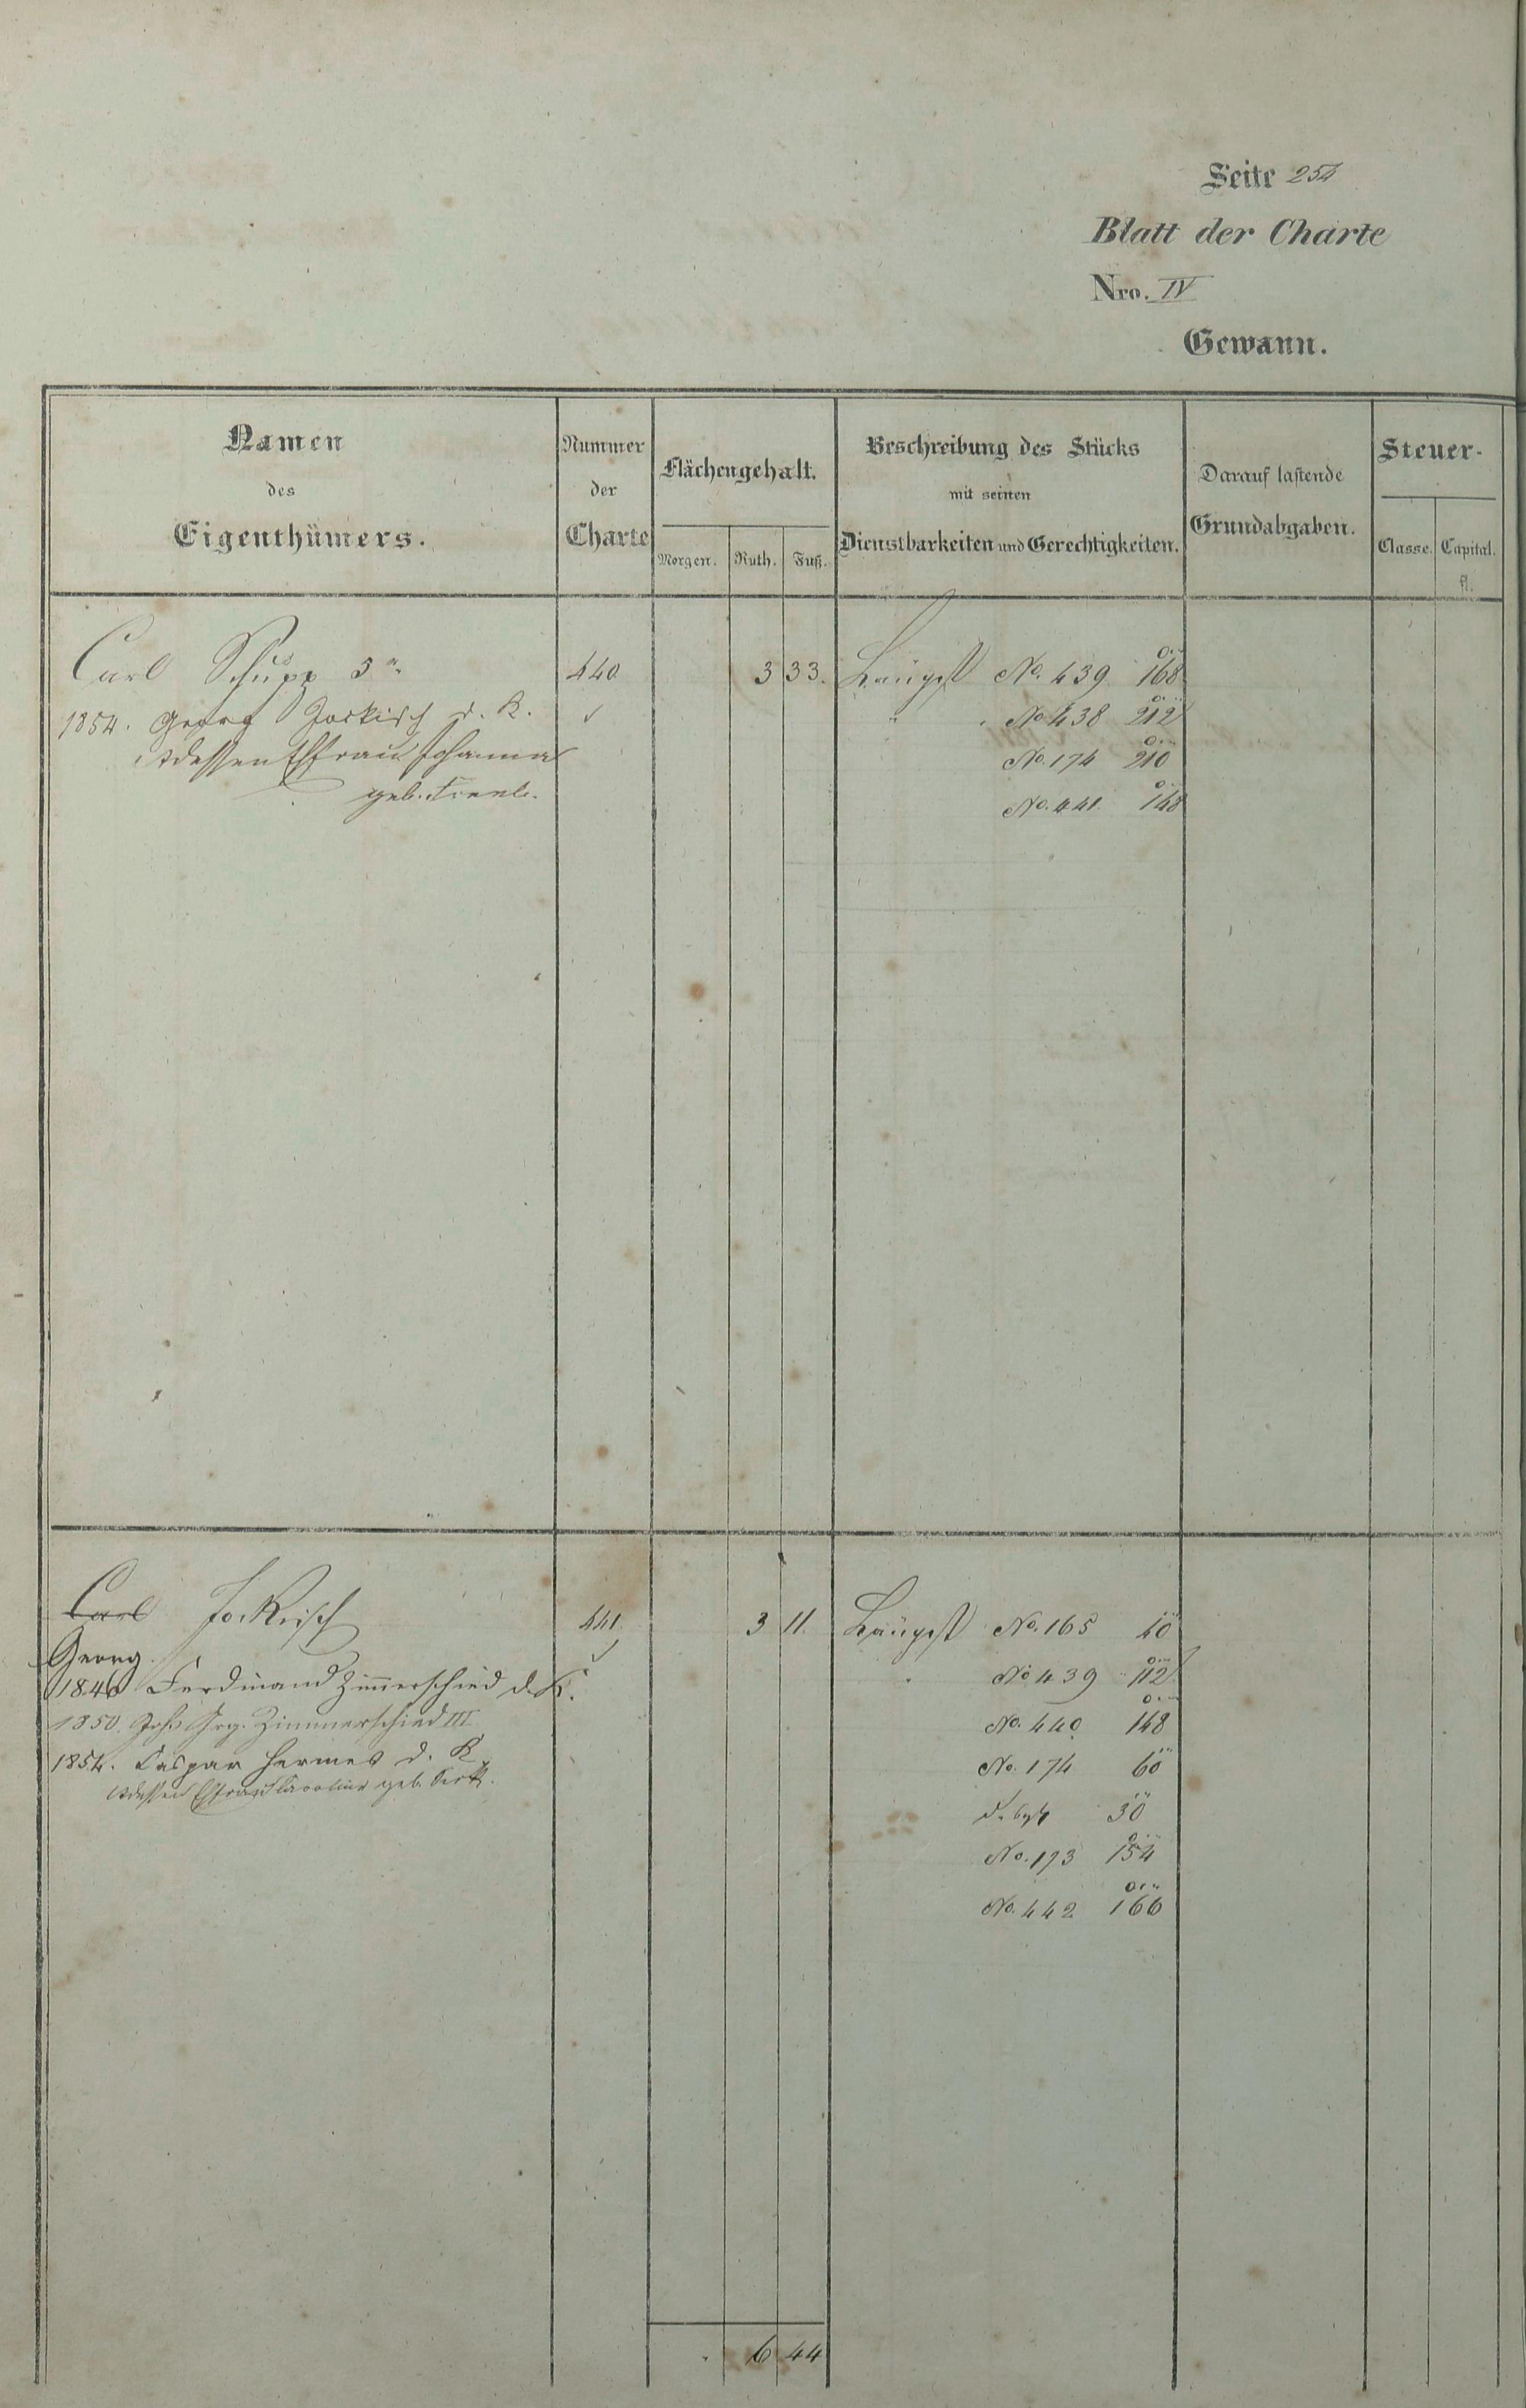 Seite 254
Blatt der Charte
Nro. IV
Gewann.
Namen
des
Eigenthümers.
Nummer
der
Charte
Flächengehalt.
Morgen. Ruth. Fuß.
Beschreibung des Stücks
mit seinen
Dienstbarkeiten und Gerechtigkeiten.
Darauf lastende
Grundabgaben.
Steuer-
Classe. Capital.
fl.
Carl Schupp 3r 440 3 33. Längst No. 439 168
1854. Georg Jockisch d. K. No. 438 212
dessen Ehfrau Johanna No. 174 210
geb. No. 441. 148
Carl Jockisch 441. 3 11. Längst No. 165 40
Georg
1846 Ferdinand Zim̄erschied d. K. No. 439 112
1850. Johs Grg. Zimmerschied III No. 440 148
1854. Caspar Hermes d. K. No. 174 60
dessen Ehfrau Caroline geb. 30
No. 173 154
No. 442 166
6 44